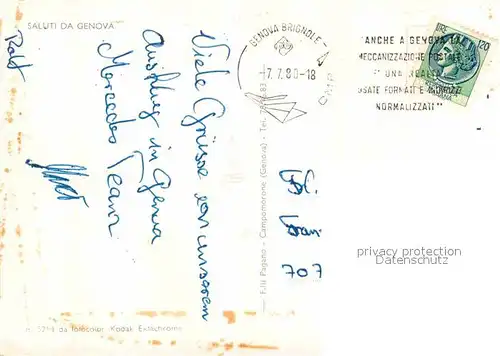 SALUTI DA GENOVA
Viele Grüsse von unserem
Ausflug in Genua
Mercedes Team
Ralf
GENOVA BRIGNOLE
7.7.80-18
"ANCHE A GENOVA LA
MECCANIZZAZIONE POSTALE
UNA REALTÀ
USATE FORMATI E INDIRIZZI
NORMALIZZATI"
LIRE 120
707
privacy protection
Datenschutz
F.lli Pagano - Campomorone (Genova) - Tel.
da fotocolor Kodak Extachrome